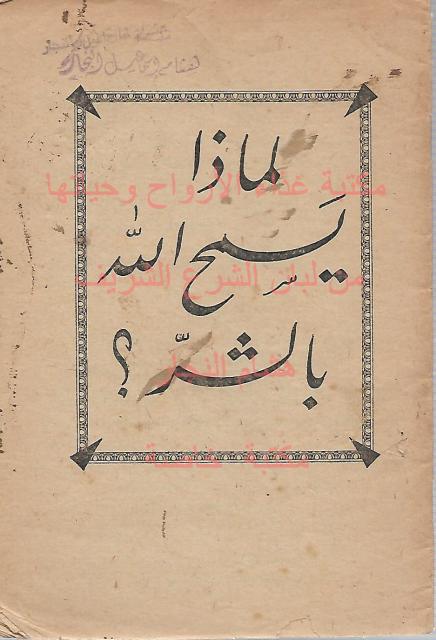 لماذا
يسمح الله
بالشرّ؟
مكتبة غذاء الأرواح وحياتها
من لبان الشرع الشريف
هشام النجار
مكتبة خاصة